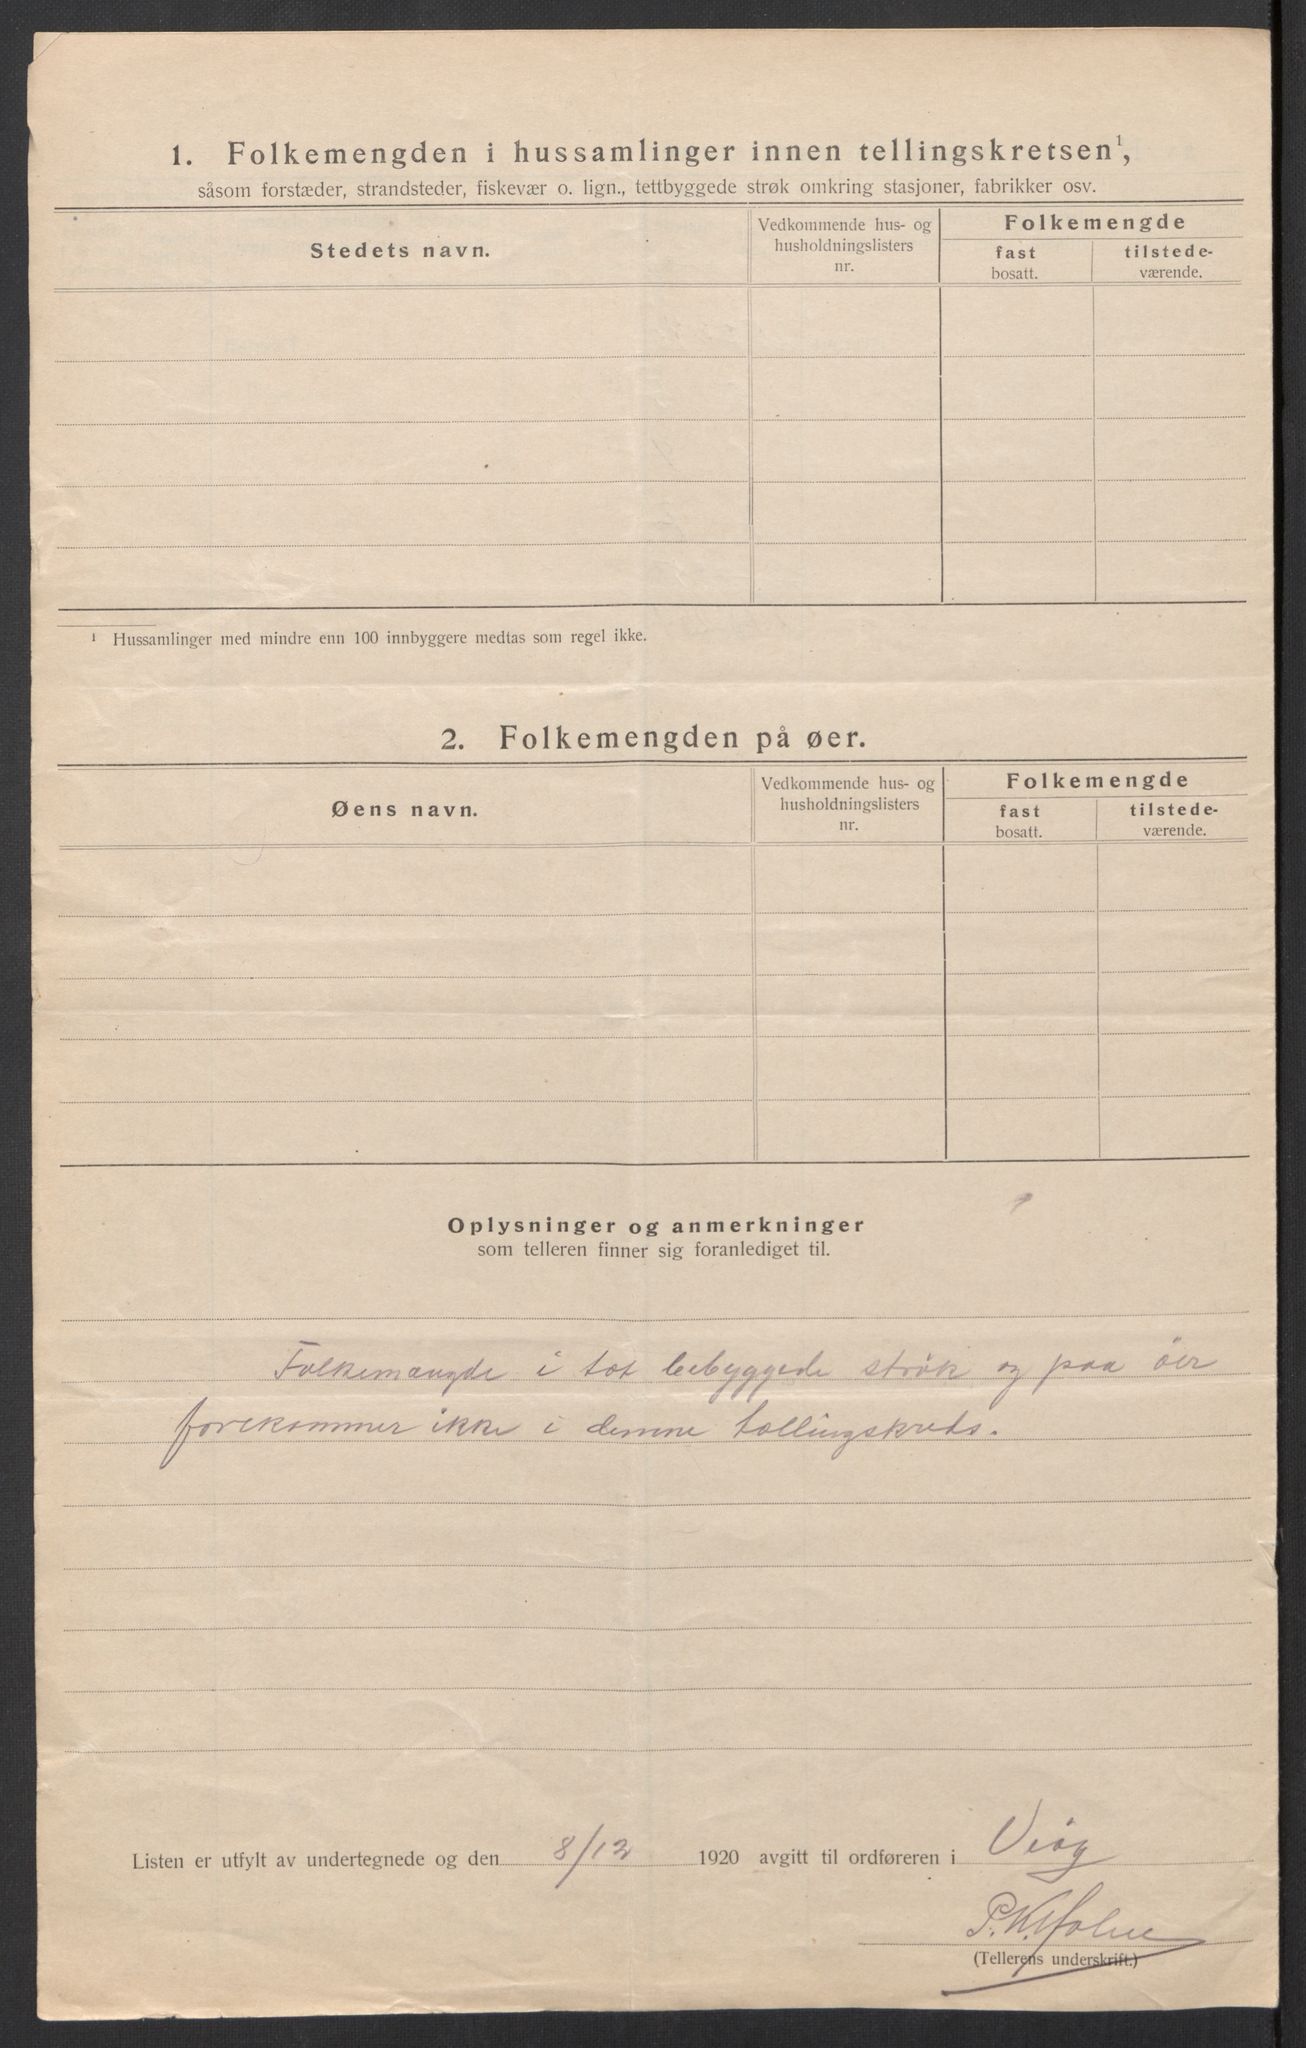 1. Folkemengden i hussamlinger innen tellingskretsen¹,
såsom forstæder, strandsteder, fiskevær o. lign., tettbyggede strøk omkring stasjoner, fabrikker osv.
Stedets navn.
Vedkommende hus- og
husholdningslisters
nr.
Folkemengde
fast
bosatt.
tilstede-
værende.
¹ Hussamlinger med mindre enn 100 innbyggere medtas som regel ikke.
2. Folkemengden på øer.
Øens navn.
Vedkommende hus- og
husholdningslisters
nr.
Folkemengde
fast
bosatt.
tilstede-
værende.
Oplysninger og anmerkninger
som telleren finner sig foranlediget til.
Folkemængde i tæt bebyggede strøk og paa öer
forekommer ikke i denne tællingskreds.
Listen er utfylt av undertegnede og den 8/12 1920 avgitt til ordføreren i Veöy
P. K. Holm
(Tellerens underskrift.)